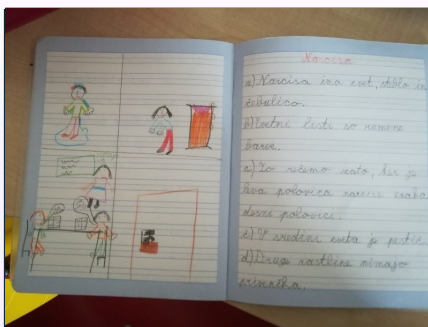 Narcisa
a) Narcisa ima cvet, steblo in
čebulico.
b) Cvetni listi so rumene
barve.
c) To rečemo zato, ker je
leva polovica narcise enaka
desni polovici.
č) V sredini cveta je pestič.
d) Druge rastline nimajo
prisevka.